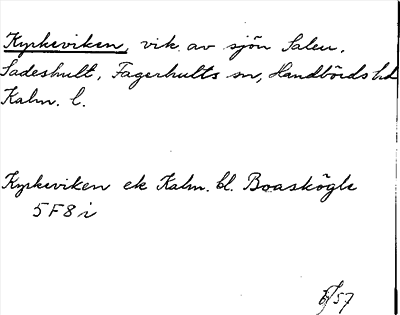 Kyrkeviken, vik av sjön Salen,
Sadeshult, Fagerhults sn, Handbörds hd
Kalm. l.
Kyrkeviken ek Kalm. bl. Boaskögle
5 F 8 i
57